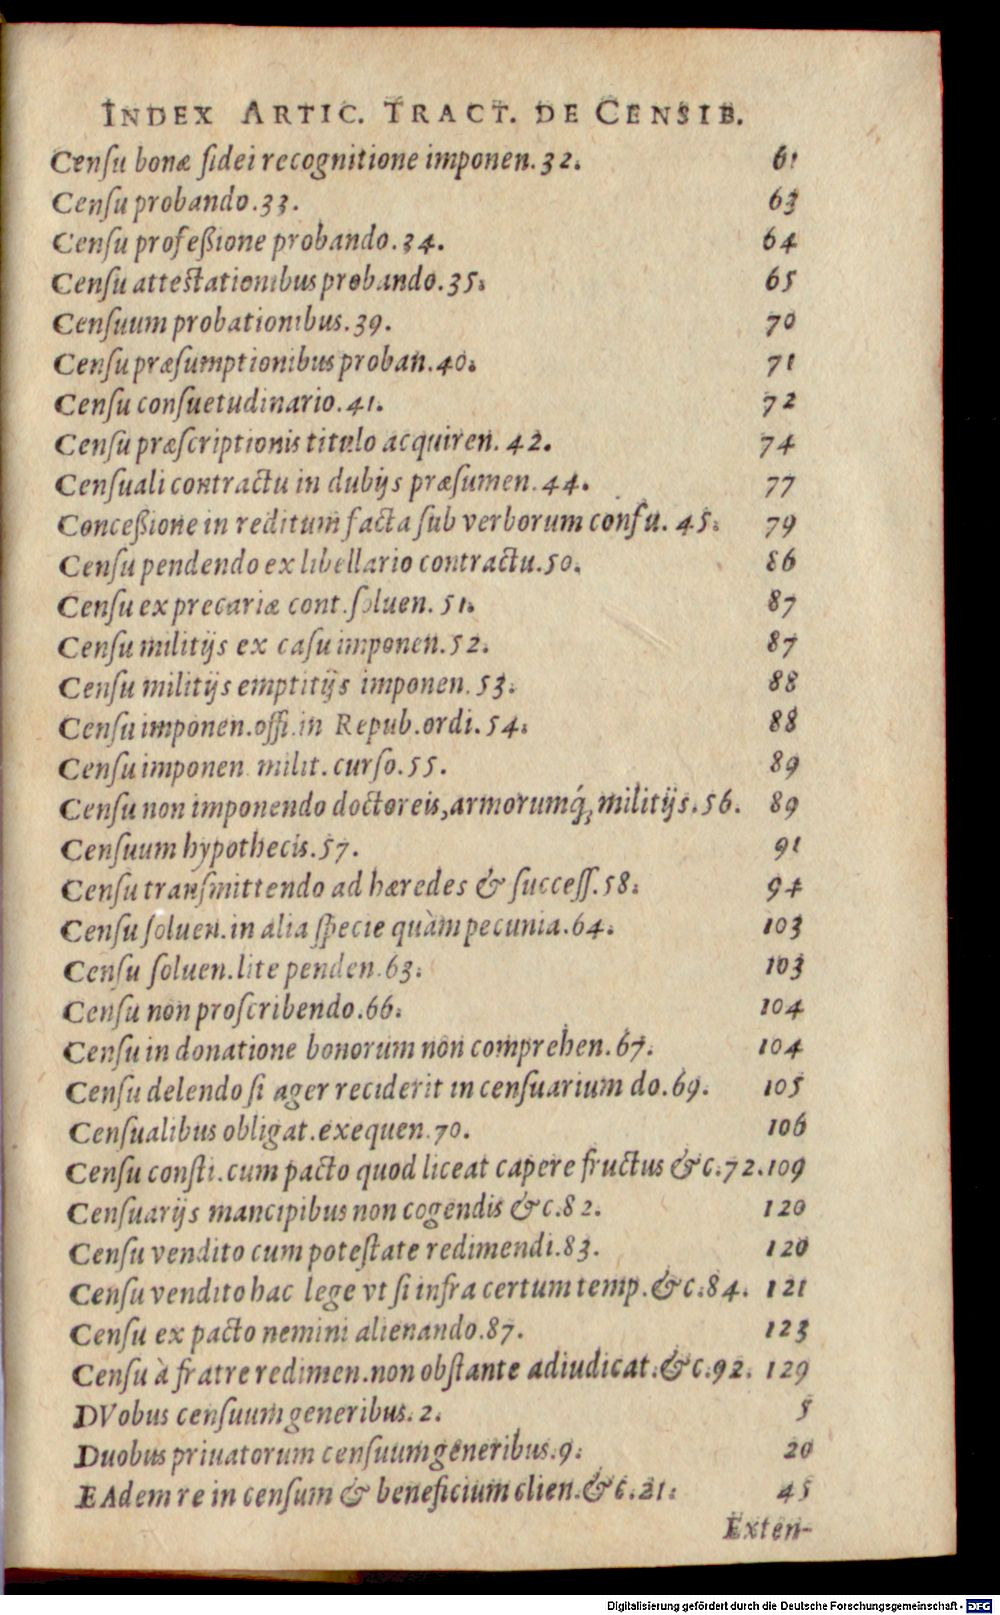 INDEX ARTIC. TRACT. DE CENSIB.
Censu bonæ fidei recognitione imponen. 32. 61
Censu probando. 33. 63
Censu profeßione probando. 34. 64
Censu attestationibus probando. 35. 65
Censuum probationibus. 39. 70
Censu præsumptionibus proban. 40. 71
Censu consuetudinario. 41. 72
Censu præscriptionis titulo acquiren. 42. 74
Censuali contractu in dubijs præsumen. 44. 77
Conceßione in reditum facta sub verborum confu. 45. 79
Censu pendendo ex libellario contractu. 50. 86
Censu ex precariæ cont. soluen. 51. 87
Censu militijs ex casu imponen. 52. 87
Censu militijs emptitijs imponen. 53. 88
Censu imponen. offi. in Repub. ordi. 54. 88
Censu imponen. milit. curso. 55. 89
Censu non imponendo doctoreis, armorumq́; militijs. 56. 89
Censuum hypothecis. 57. 91
Censu transmittendo ad hæredes & success. 58. 94
Censu soluen. in alia specie quàm pecunia. 64. 103
Censu soluen. lite penden. 63. 103
Censu non proscribendo. 66. 104
Censu in donatione bonorum non comprehen. 67. 104
Censu delendo si ager reciderit in censuarium do. 69. 105
Censualibus obligat. exequen. 70. 106
Censu consti. cum pacto quod liceat capere fructus &c. 72. 109
Censuarijs mancipibus non cogendis &c. 82. 120
Censu vendito cum potestate redimendi. 83. 120
Censu vendito hac lege vt si infra certum temp. &c. 84. 121
Censu ex pacto nemini alienando. 87. 123
Censu à fratre redimen. non obstante adiudicat. &c. 92. 129
DVobus censuum generibus. 2. 5
Duobus priuatorum censuum generibus. 9. 20
EAdem re in censum & beneficium clien. &c. 21. 45
Exten-
Digitalisierung gefördert durch die Deutsche Forschungsgemeinschaft - DFG